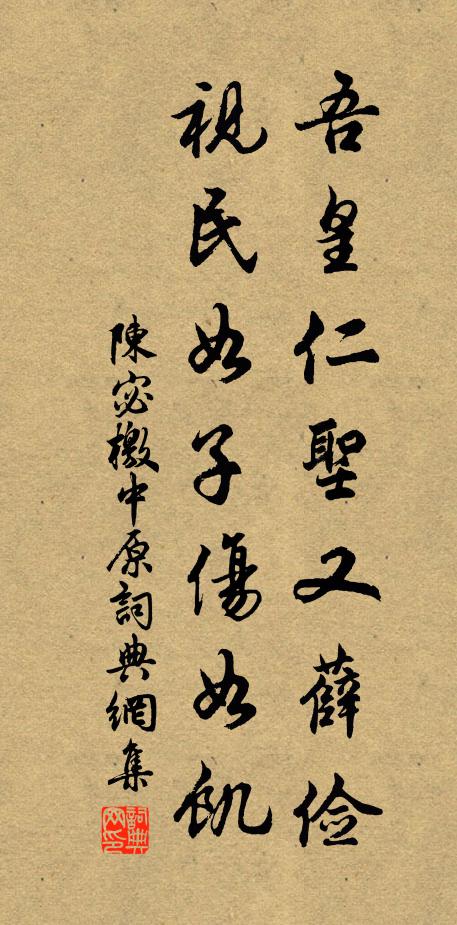 吾皇仁聖又薛儉
視民如子傷如飢
陳宓檄中原詞典網集
詞典网印